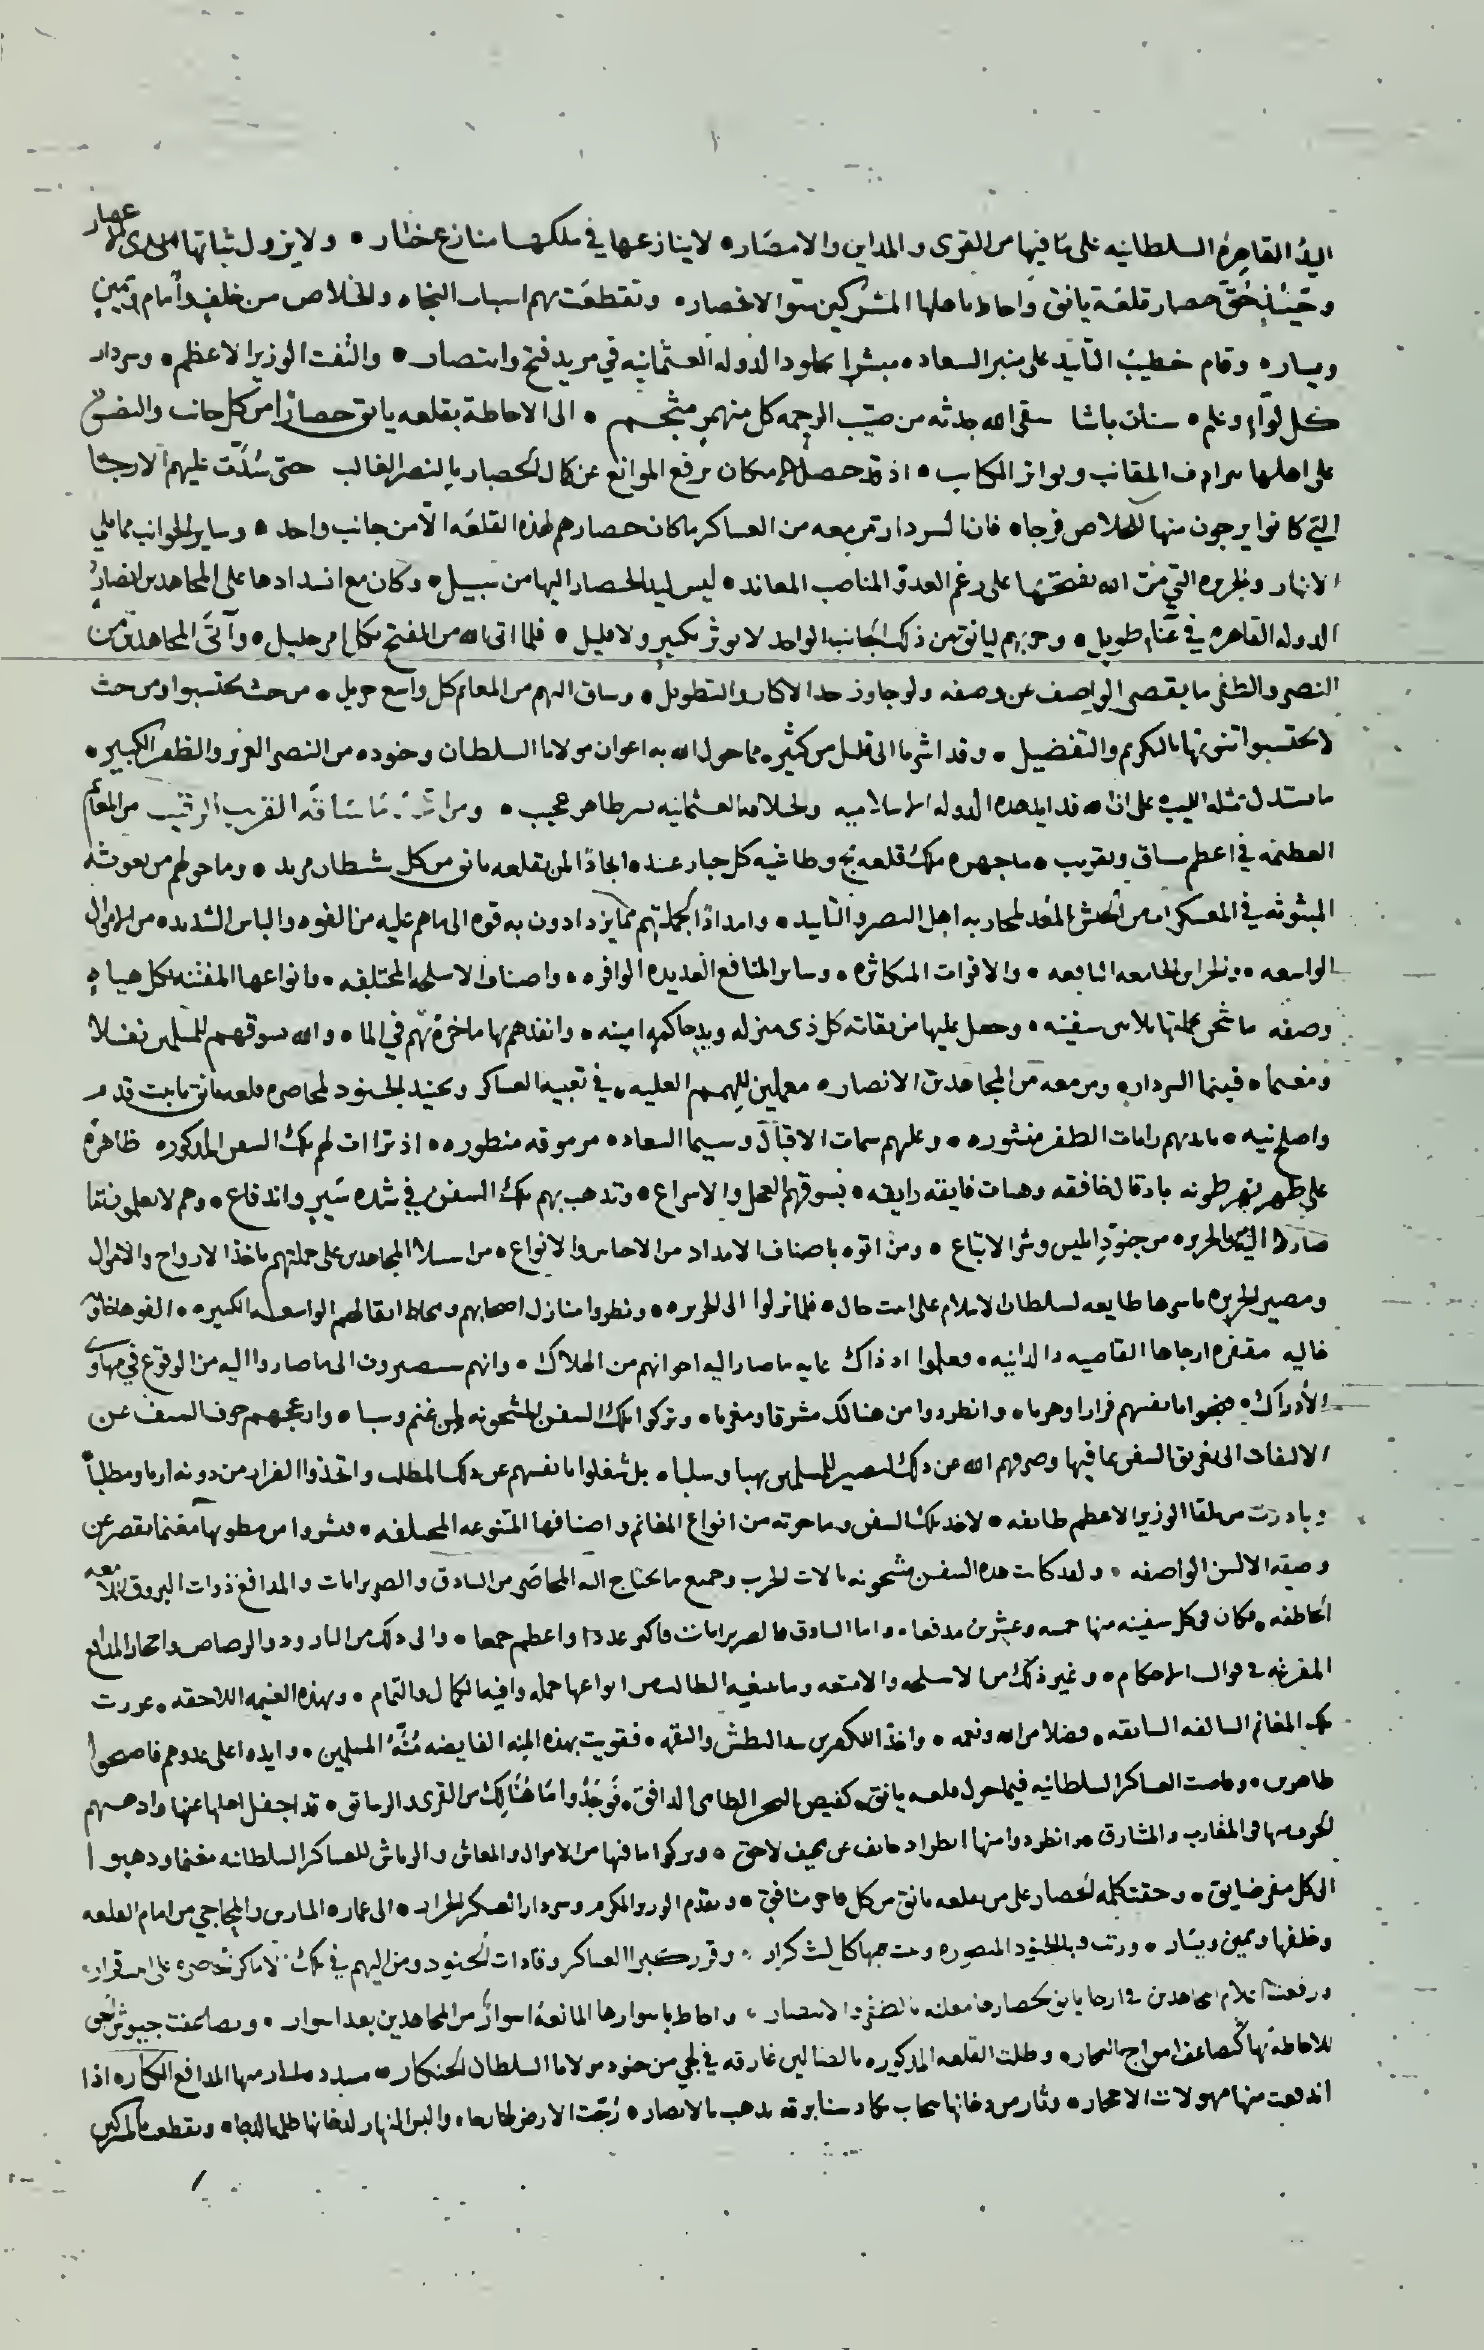 اليدُ القاهرةُ السلطانيه على ما فيها من القرى والمداين والامصار • لا ينازعها في ملكها منازع ختار • ولا يزول ثباتها
وحينئذٍ حُقَّ حصار قلعة يانق واحاط باهلها المشركين سوَ الانحصار • وتقطعت بهم اسباب النجاه والخلاص من خلفٍ وأمام ويمين
ويسار • وقام خطيبُ التأييد على منبر السعاده مبشرا بخلود الدوله العثمانيه في مزيد فتح وانتصار • والتفت الوزير الاعظم • وسردار
كل لوآءٍ وعلم • سنان باشا سقى الله جدثه من صيّب الرحمه كل منهمرٍ مثجم • الى الاحاطة بقلعه يانق حصارًا من كل جانب والتضييق
على اهلها بترادف المقانب وتواتر الكتايب • اذ قد حصل الامكان برفع الموانع عن كمال الحصار بالنصر الغالب حتى سُدَّت عليهم الارجا
التي كانوا يرجون منها للخلاص فرجا • فان السردار ومن معه من العساكر ما كان حصارهم لهذه القلعه الا من جانب واحد • وساير الجوانب مما يلي
الانهار والجزيره التي منّ الله بفتحها على رغم العدوّ المناصب المعاند • ليس ليد الحصار اليها من سبيل • وكان مع انسدادها على المجاهدين انصار
الدوله القاهره في عناء طويل • وحربهم ليانق من ذلك الجانب الواحد لا يوثر بكثير ولا قليل • فلما اتى الله من الفتح بكل امر جليل • وآتى المجاهدين من
النصر والظفر ما يقصر الواصف عن وصفه ولو جاوز حد الاكثار والتطويل • وساق اليهم من المغانم كل واسع جزيل • من حيث يحتسبوا ومن حيث
لا يحتسبوا تنويها بالتكريم والتفضيل • وقد اشرنا الى قليل من كثير • مما خول الله به اعوان مولانا السلطان وجنوده من النصر العزيز والظفر الكبير •
ما يستدل بمثله اللبيب على ان لله في هذه الدوله الاسلاميه والخلافه العثمانيه سر ظاهر عجيب • ومن ما ساقه القريب الرقيب من المغانم
العظيمه في اعظم مساق وتقريب • ما جهزه ملك قلعه بج وطاغيه كل جبار عنيد • انجادًا لمن بقلعه يانق من كل شيطان مريد • وما حولهم من بعوثه
المبثوثه في المعسكرات من الجيش المُعد لمحاربه اهل النصر والتأييد • وامدادًا لجملتهم بما يزدادون به قوه الى ما هم عليه من القوه والباس الشديد • من الاموال
الواسعه • والخزاين الجامعه النافعه • والاقوات المتكاثره • وساير المنافع العديده الوافره • واصناف الاسلحه المختلفه • وانواعها المفننه بكل هياه
وصفه ما شحن بجملتها ثلاثين سفينه • وجعل عليها من ثقاته كل ذي منزله ويدٍ حاكمهٍ امينه • وانفذهم بها ماخرة بهم في الما • والله يسوقهم للمسلمين نفلا
ومغنما • فبينما السردار ومن معه من المجاهدين الانصار • معملين للهمم العليه • في تعبيه العساكر وتجنيد الجنود لمحاصره قلعه يانق باثبت قدم
واصلح نيه • بايديهم رايات الظفر منشوره • وعليهم سمات الاقبال وسيما السعاده مرموقه منظوره • اذ تراات لهم تلك السفن المذكوره ظاهرة
على ظهر نهر طونه بادقال خافقه وهيات فايقه رايقه • يسوقهم العجل والاسراع • وتذهب بهم تلك السفن في شده سيرٍ واندفاع • وهم لا يعلمون بما
صارت اليه الجزيره من جنودِ ابليس وشر الاتباع • ومن اتوه باصناف الامداد من الاجناس والانواع • من استيلا المجاهدين على جملتهم باخذ الارواح والاموال
ومصير الجزيره باسرها طايعه لسلطان الاسلام على اثبت حال • فلما نزلوا الى الجزيره • ونظروا منازل اصحابهم ومحاط اثقالهم الواسعه الكبيره • الفوها خاويه
خاليه مقفره ارجاها القاصيه والدانيه • وعلموا اذ ذاك غايه ما صار اليه اخوانهم من الهلاك • وانهم سيصيرون الى ما صاروا اليه من الوقوع في مهاوى
الأدراك • فنجوا بانفسهم فرارا وهربا • وانطردوا من هنالك مشرقا ومغربا • وتركوا تلك السفن المشحونه لمن غنم وسبا • وازعجهم خوف السيف عن
الالتفات الى تغريق السفن بما فيها وصرفهم الله عن ذلك لتصير للمسلمين نهبا وسلبا • بل شغلوا بانفسهم عن ذلك المطلب واتخذوا الفرار من دونه اربا ومطلبا
وبادرت من تلقا الوزير الاعظم طايفه • لاخذ تلك السفن وما حوته من انواع المغانم واصنافها المتنوعه المختلفه • وبشروا من مطلوبهم بمغنما يقصر عن
وصفه الالسن الواصفه • ولقد كانت هذه السفن مشحونه بالات الحرب وجميع ما يحتاج اليه المحاضر من البنادق والصربزانات والمدافع ذوات البروق اللامعه
الخاطفه • فكان في كل سفينه منها خمسه وعشرين مدفعا • واما البنادق والصربزانات فاكثر عددا واعظم جمعا • والى ذلك من البارود والرصاص واحجار المدافع
المفرغه في قوالب الاحكام • وغير ذلك من الاسلحه والامتعه وما يبتغيه الطالب من انواعها جمله وافيه الكمال والتمام • وبهذه الغنيمه اللاحقه • عززت
تلك المغانم السالفه السابقه • فضلا من الله ونعمه • واخذ للكفرين بيد البطش والنقمه • فقويت بهذه المنه الفايضه مُنَّهُ المسلمين • وايدوا على عدوهم فاصبحوا
ظاهرين • وفاضت العساكر السلطانيه فيما حول قلعه يانق • كفيض البحر الطامى الدافق • فوَجَدُوا مَا هُنَالِكَ من القرى والرساتق • قد اجفل اهلها عنها وادهمهم
الخوف في المغارب والمشارق • وانطردوا منها انطراد خايف عن مخيف لاحق • وتركوا ما فيها من الاموال والمعاش والرياش للعساكر السلطانيه مغنما وذهبوا
الى كل مفر ضايق • وحقت كلمه الحصار على من بقلعه يانق من كل فاجر منافق • وتقدم الوزير المكرم وسردار العسكر الجرار • الى عماره المتارس والمجاحي من امام القلعه
وخلفها ويمين ويسار • ورتب فيها الجنود المنصوره وجهاتها كالليث كرار • وقرر كبرا العساكر وقادات الجنود ومن اليهم في تلك الاماكن لحصره على استقرار •
ورفعت اعلام المجاهدين في ارجا يانق بحصارها معلنه بالظفر والانتصار • واحاط باسوارها المانعهُ اسوارٌ من المجاهدين بعد اسوار • وتضاعفت جيوش الحق
للاحاطه بها كتضاعف امواج البحار • وظلت القلعه المذكوره بالضالين غارقه في لجي من جنود مولانا السلطان الخنكار • المدافع الكبار • اذا
اندفعت منها مهولات الاحجار • وثار من دخانها سحاب يكاد سنا برقه يذهب بالابصار • رُجّت الارض • والبس النهار لدخانها ظلمه الدجا • وتقطعت